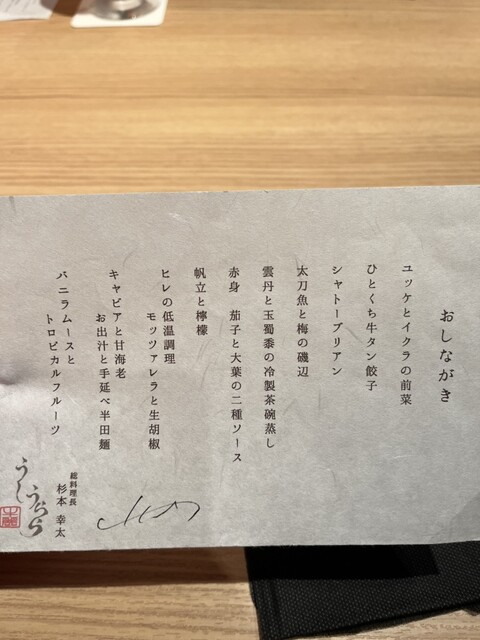 おしながき
ユッケとイクラの前菜
ひとくち牛タン餃子
シャトーブリアン
太刀魚と梅の磯辺
雲丹と玉蜀黍の冷製茶碗蒸し
赤身　茄子と大葉の二種ソース
帆立と檸檬
ヒレの低温調理
モッツァレラと生胡椒
キャビアと甘海老
お出汁と手延べ半田麺
バニラムースと
トロピカルフルーツ
総料理長
杉本 幸太
うしうらら